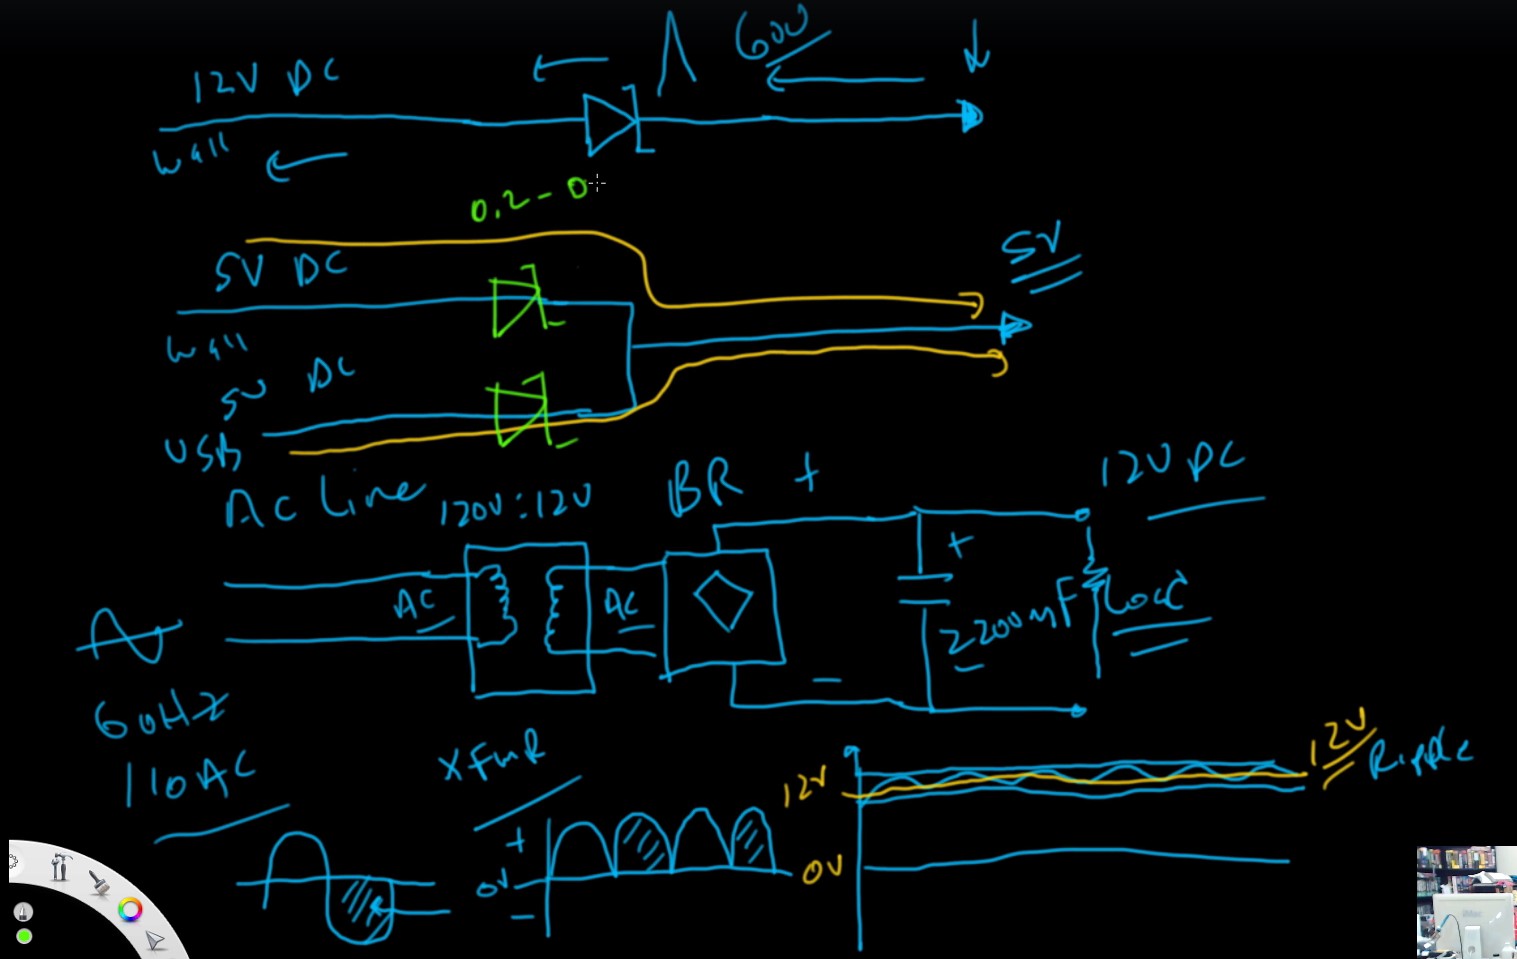 600
12V DC
Wall
0.2 - 0
5V
5V DC
Wall
5V DC
USB
AC Line
120V:12V
BR
+
12V DC
+
AC
AC
2200mF
Load
-
60HZ
110AC
XFMR
12V
12V
Ripple
+
0V
-
0V